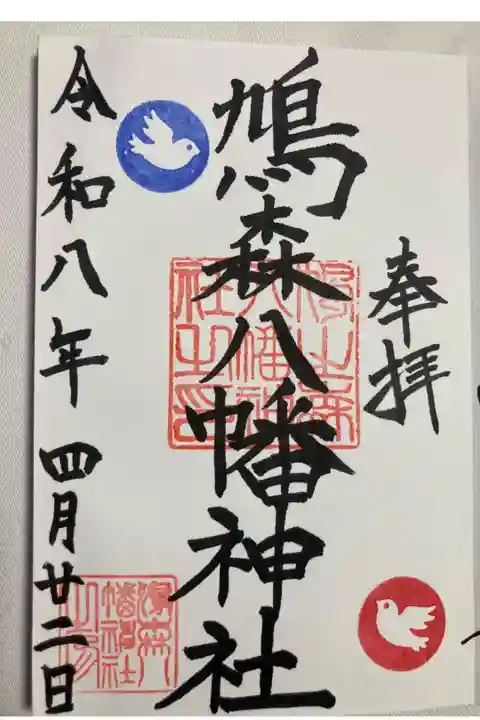 奉拝
鳩森八幡神社
鳩之森
八幡神
社之印
令和八年 四月廿二日
幡神社